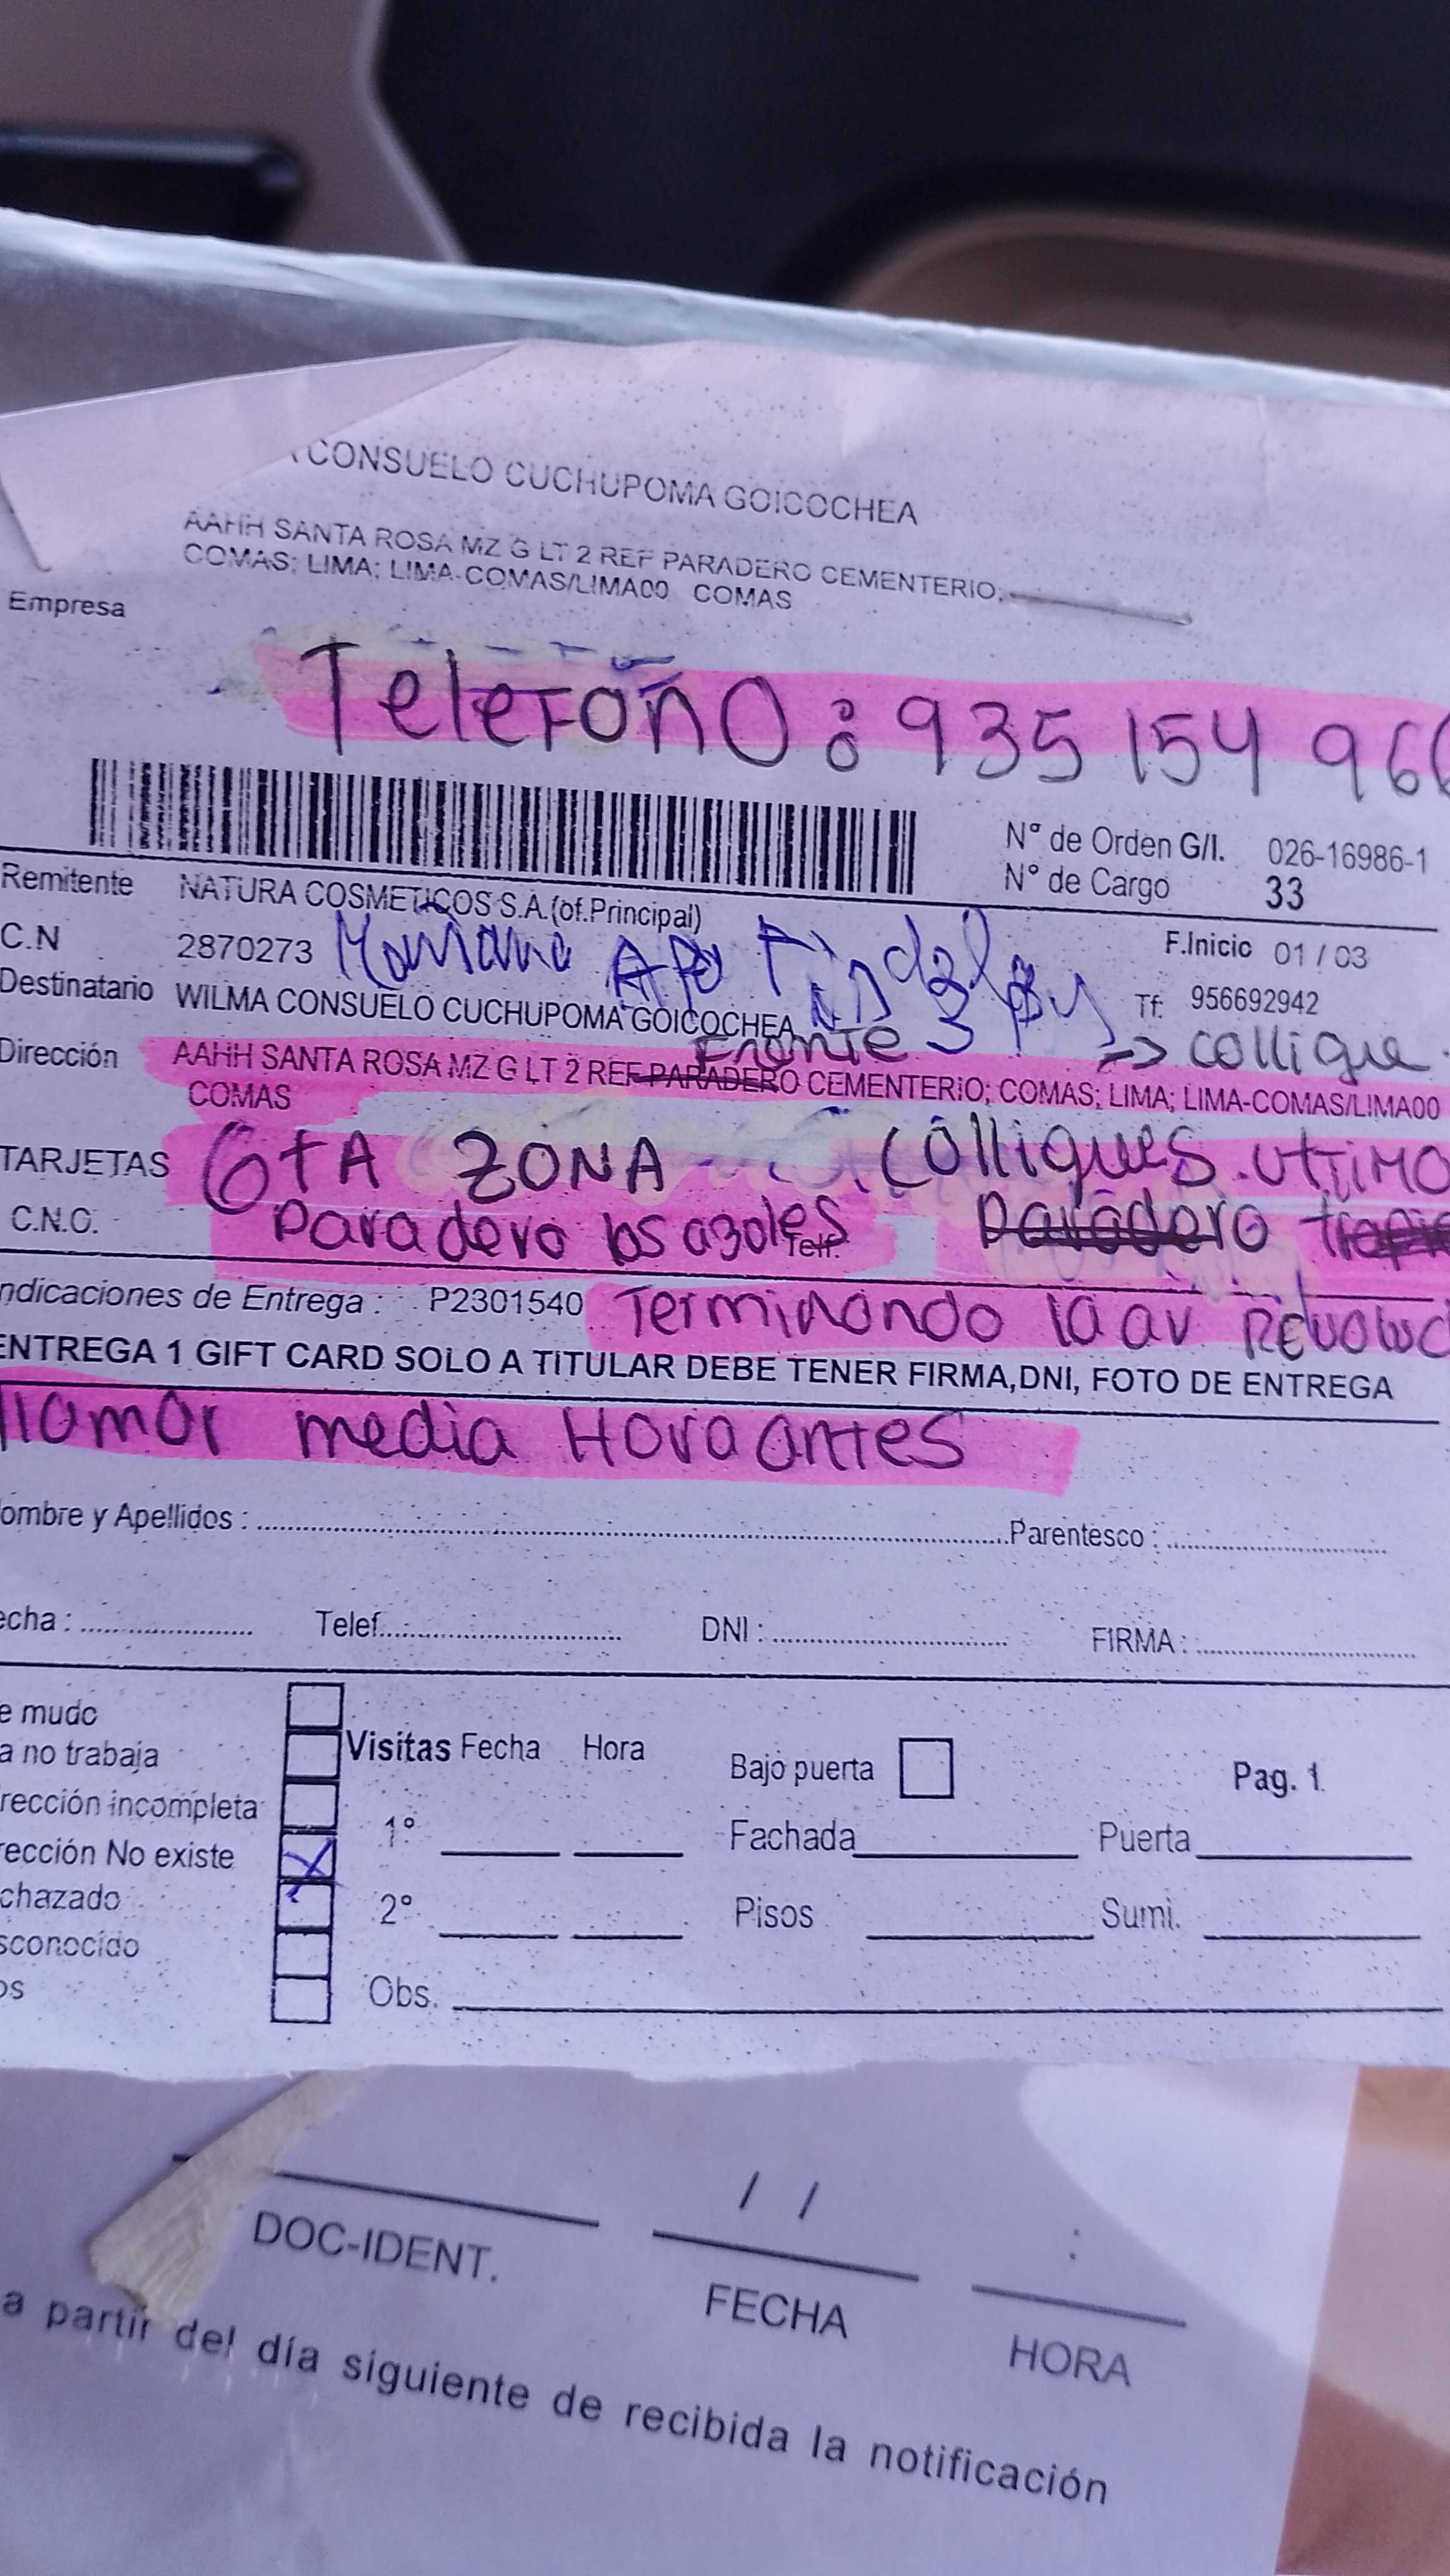 CONSUELO CUCHUPOMA GOICOCHEA
AAHH SANTA ROSA MZ G LT 2 REF PARADERO CEMENTERIO;
COMAS; LIMA; LIMA-COMAS/LIMA00 COMAS
Empresa
Telefoño: 935 154 96
N° de Orden G/I. 026-16986-1
N° de Cargo 33
Remitente NATURA COSMETICOS S.A.(of.Principal)
C.N 2870273 Mañana
F.Inicio 01 / 03
Destinatario WILMA CONSUELO CUCHUPOMA GOICOCHEA
Tf: 956692942
Frente → collique
Dirección AAHH SANTA ROSA MZ G LT 2 REF PARADERO CEMENTERIO; COMAS; LIMA; LIMA-COMAS/LIMA00
COMAS
TARJETAS 6TA ZONA Colliques. UTTIMO
C.N.C. Paradero los azoles Telf: Paradero
ndicaciones de Entrega : P2301540 Terminando la av Revoluc
ENTREGA 1 GIFT CARD SOLO A TITULAR DEBE TENER FIRMA,DNI, FOTO DE ENTREGA
llamar media Hora antes
ombre y Apellidos : Parentesco :
echa : Telef. DNI : FIRMA :
e mudo
a no trabaja
rección incompleta
rección No existe X
chazado
sconocido
os
Visitas Fecha Hora
1°
2°
Obs.
Bajo puerta
Pag. 1
Fachada Puerta
Pisos Sumi.
/ / :
DOC-IDENT. FECHA HORA
a partir del día siguiente de recibida la notificación